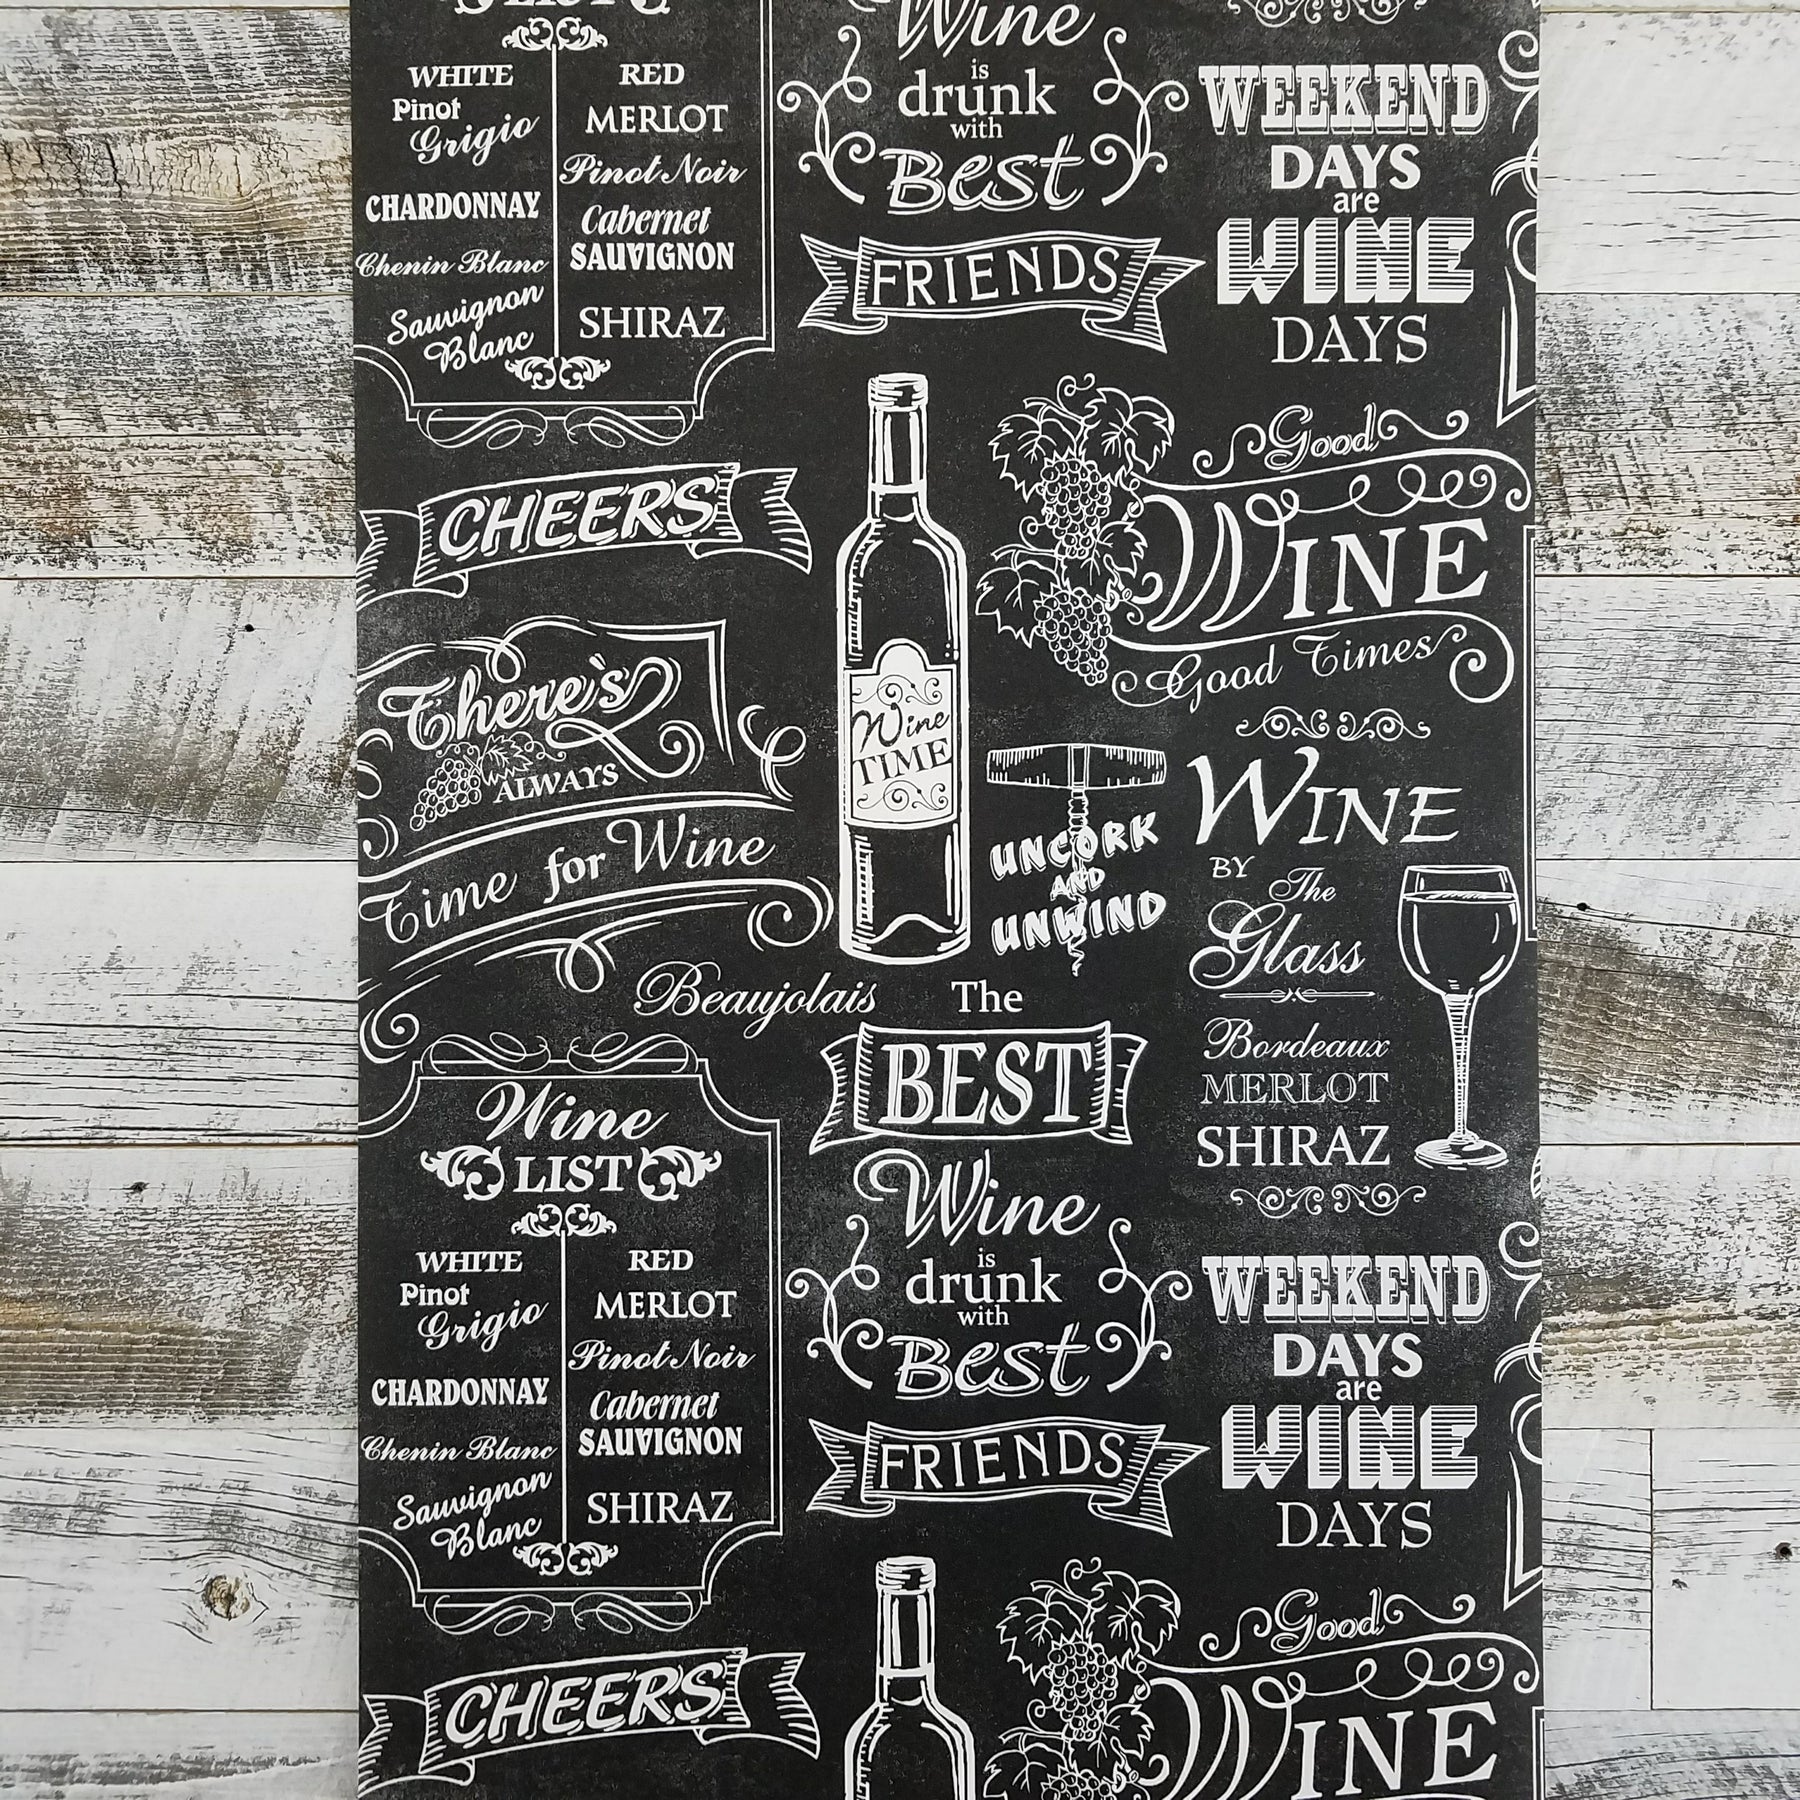 LIST
WHITE
Pinot
Grigio
CHARDONNAY
Chenin Blanc
Sauvignon
Blanc
RED
MERLOT
Pinot Noir
Cabernet
SAUVIGNON
SHIRAZ
Wine
is
drunk
with
Best
FRIENDS
WEEKEND
DAYS
are
WINE
DAYS
CHEERS
There's
ALWAYS
Time for Wine
Wine
TIME
Good
WINE
Good Times
UNCORK
AND
UNWIND
WINE
BY
The
Glass
Bordeaux
MERLOT
SHIRAZ
Beaujolais
The
BEST
Wine
is
drunk
with
Best
FRIENDS
Wine
LIST
WHITE
Pinot
Grigio
CHARDONNAY
Chenin Blanc
Sauvignon
Blanc
RED
MERLOT
Pinot Noir
Cabernet
SAUVIGNON
SHIRAZ
WEEKEND
DAYS
are
WINE
DAYS
CHEERS
Good
WINE